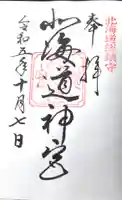 奉拝
北海道総鎮守
北海道神宮
令和五年十月七日